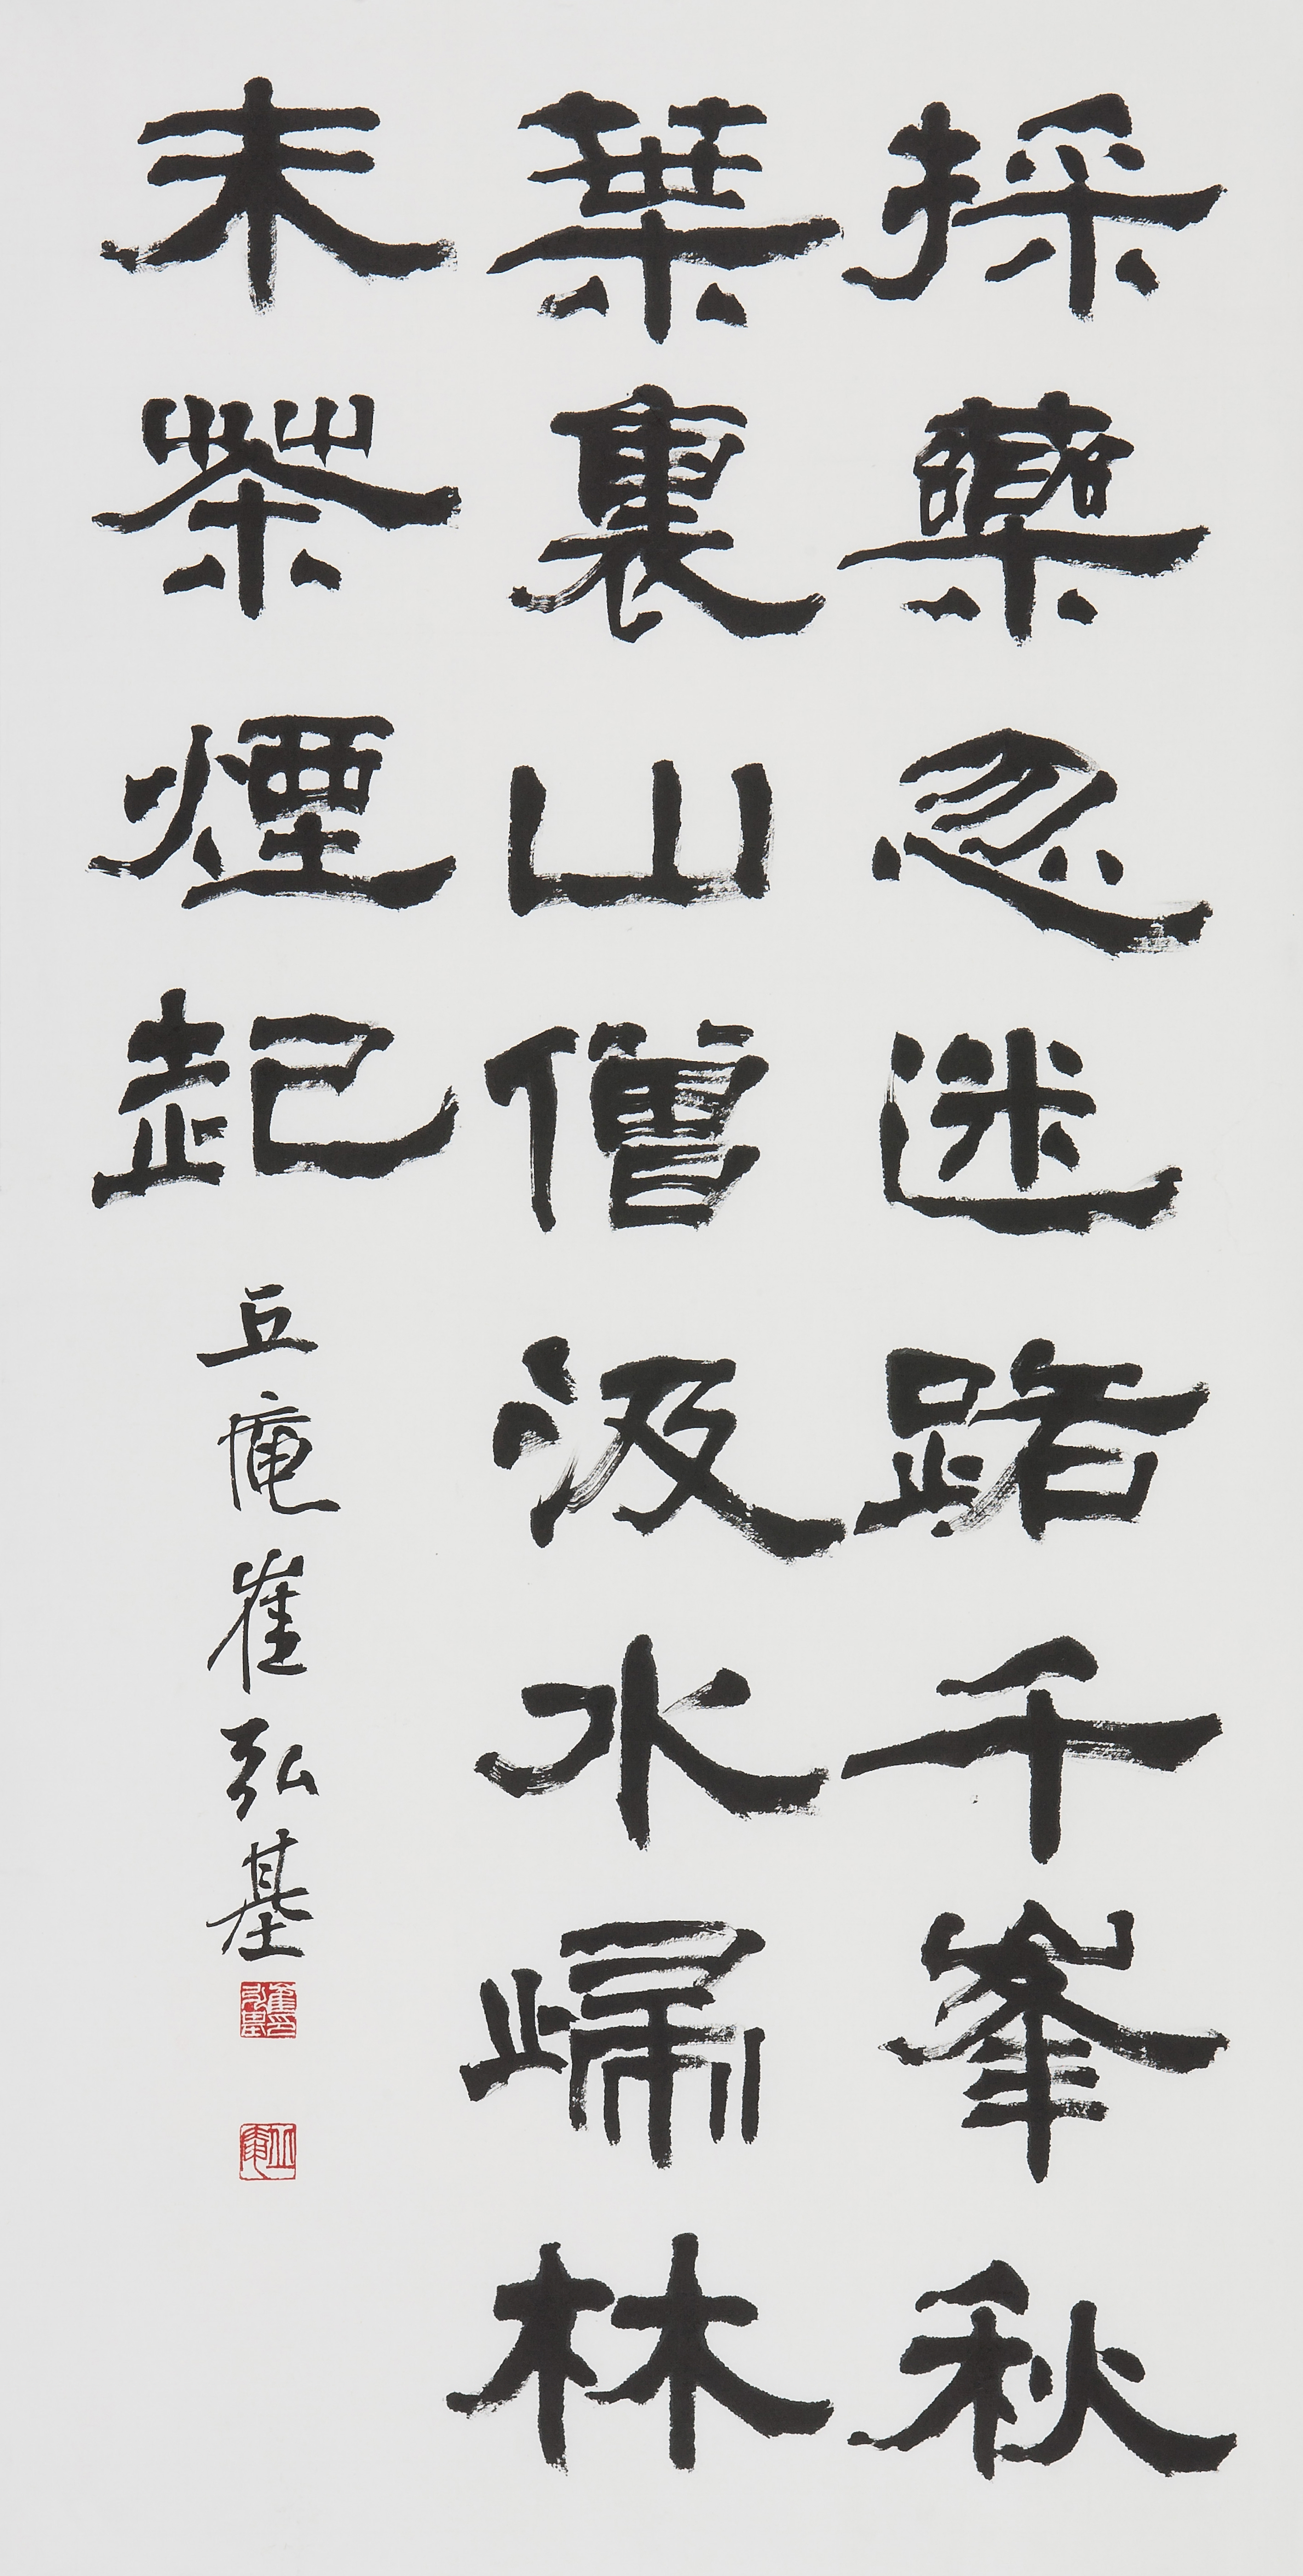 採藥忽迷路千峯秋
葉裏山僧汲水歸林
末茶煙起
丘庵崔弘基